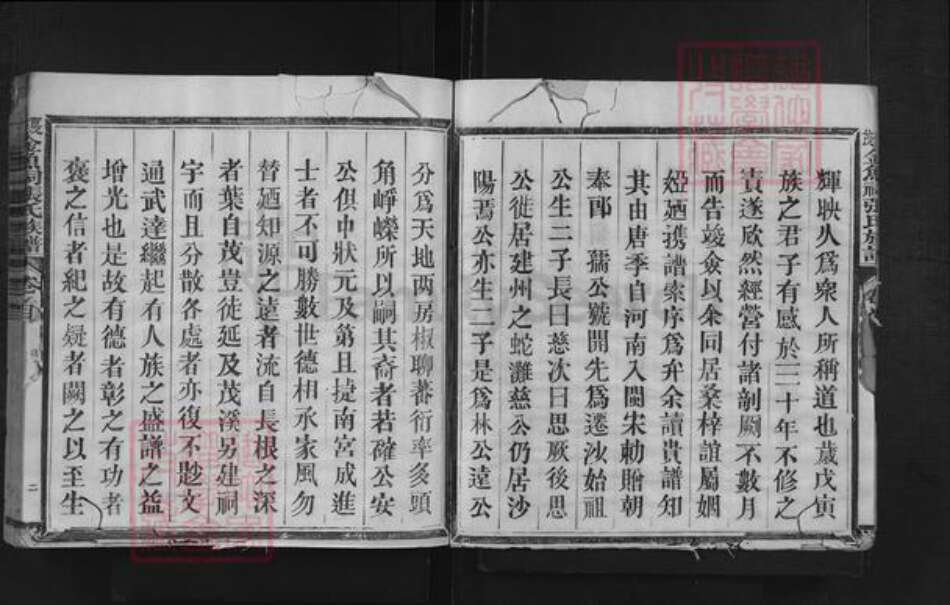 輝映久爲衆人所稱道也歲戊寅
族之君子有感於三十年不修之
責遂欣然經營付諸剞劂不數月
而告竣僉以余同居桑梓誼屬姻
婭廼携譜索序爲弁余讀貴譜知
其由唐季自河南入閩宋勅贈朝
奉郎 孺公號開先爲遷沙始祖
公生二子長曰慈次曰思厥後思
公徙居建州之蛇灘慈公仍居沙
陽焉公亦生二子是爲林公達公
分爲天地两房椒聊蕃衍率多頭
角崢嶸所以嗣其裔者若確公安
公俱中狀元及第且捷南宮成進
士者不可勝數世德相承家風勿
替廼知源之遠者流自長根之深
者葉自茂豈徒延及茂溪另建祠
宇而且分散各處者亦復不尠文
通武達繼起有人族之盛譜之益
增光也是故有德者彰之有功者
褒之信者紀之疑者闕之以至生
張氏族譜
卷首
二